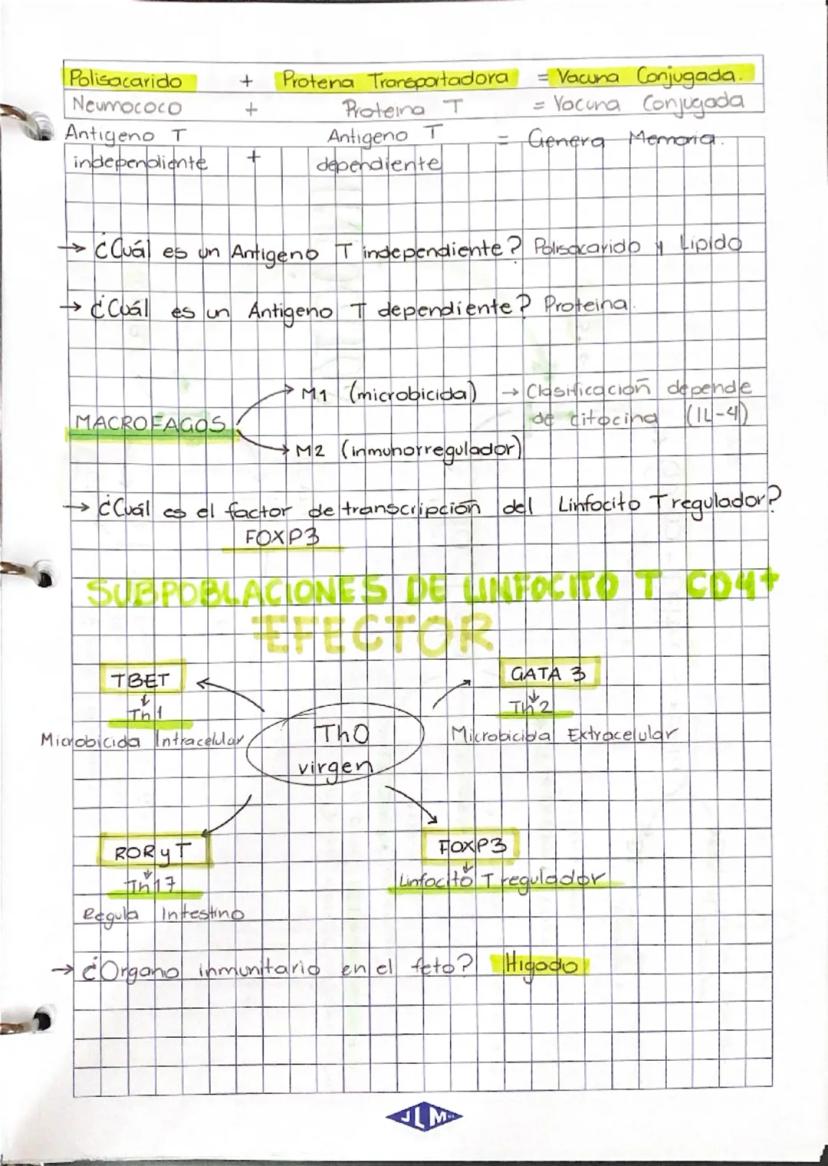 Polisacarido + Protena Transportadora = Vacuna Conjugada.
Neumococo + Proteina T = Vacuna Conjugada
Antigeno T Antigeno T = Genera Memoria.
independiente + dependiente
→ ¿Cuál es un Antigeno T independiente? Polisacarido y Lipido
→ ¿Cuál es un Antigeno T dependiente? Proteina.
→ M1 (microbicida) → Clasificación depende
MACROFAGOS de citocina (IL-4)
→ M2 (inmunorregulador)
→ ¿Cuál es el factor de transcripción del Linfocito T regulador?
FOXP3
SUBPOBLACIONES DE LINFOCITO T CD4+
EFECTOR
TBET GATA 3
↓ ↓
Th1 Th2
Microbicida Intracelular Th0 Microbicida Extracelular
virgen
RORγT FOXP3
↓ ↓
Th17 Linfocito T regulador
Regula Intestino
→ ¿Organo inmunitario en el feto? Higado
JLM